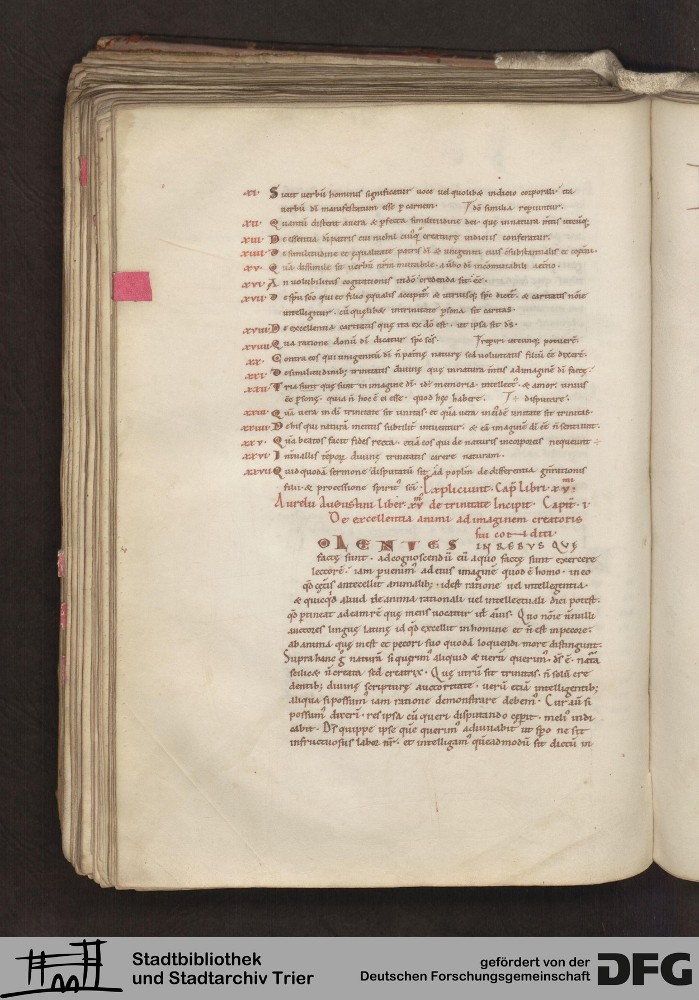 XI. Sicut verbū hominis significatur voce vel quolibæ indicio corporali. ita
verbū dī manifestatum esse p̄ carnem. Id̄o similia repiuntur.
XII. Quantū distent a vera & p̄fecta similitudine dei. quę in natura m̄tis utcūq;
XIII. De essentia dī patris cui nichil cuiq; creaturę indiciis conferatur.
XIIII. De similitudine et equalitate patris dī & unigeniti eius c̄substantialis et c̄oęt̄ni.
XV. Quā dissimile sit verbū nr̄m mutabile. a ūbo dī incōmutabili aet̄no.
XVI. An volubilitas cogitationis in dō credenda sit ēē.
XVII. De sp̄u sc̄o qui et filio ęqualis accipit̄ & utriusq; sp̄c dicit̄. & caritatis nōīe
intellegitur. cū quęlibæ in trinitate p̄sona sit caritas.
XVIII. De excellentia caritatis quę ita ex dō est. ut ipsa sit d̄s.
XVIIII. Qua ratione donū dī dicatur sp̄c sc̄s. reperiri utcunq; potuerī.
XX. Contra eos qui unigenitū dī n̄ paternę naturę sed voluntatis filiū ēē dixer̄.
XXI. De similitudinib; trinitatis divinę. quę in natura m̄tis ad imaginē dī factę.
XXII. Tria sunt quę sunt in imagine dī. id ē memoria. intellect̄. & amor. unius
ēē p̄sonę. quia n̄ hoc ē ei esse. quod hęc habere. disputare.
XXIII. Quā vera in dī trinitate sit unitas. et quā vera in ei'dē unitate sit trinitas.
XXIIII. De his qui naturā mentis subtilit̄ intuentur. & eā imaginē dī ēē n̄ sentiunt.
XXV. Quā beatos facit fides recta. etiā eos qui de naturis incorporeis nequeunt
XXVI. Intervallis tēporū divinę trinitatis carere naturam.
XXVII. Quid quodā sermone disputatū sit ad poplm̄ de differentia gn̄rationis
filii. & processione spiritus sc̄i. Expliciunt Cap̄ Libri .xv.mi
Aurelii Augustini liber .xv. de trinitate Incipit. Capit̄ I.
De excellentia animi ad imaginem creatoris
sui conditi.
OLENTES IN REBUS QUĘ
factę sunt. ad cognoscendū eū a quo factę sunt exercere
lectorē. iam pvenim' ad eius imaginē quod ē homo. in eo
q̄d cęteris antecellit animalib; idest ratione vel intellegentia.
& quicq̄d aliud de anima rationali vel intellectuali dici potest.
q̄d ptineat ad eam rē quę mens vocatur vł aīus. Quo nōīe nnulli
auctores linguę latinę id q̄d excellit in homine et n̄ est in pecore.
ab anima quę inest et pecori suo quodā loquendi more distingunt.
Supra hanc g̊ naturā si quęrim' aliquid & verū querim'. d̄s ē. nat̄a
scilicæ n̄ creata sed creatrix. Quę utrū sit trinitas. n̄ solū cre
dentib; divinę scripturę auctoritate. verū etiā intelligentib;
aliqua si possum' iam ratione demonstrare debem'. Cur aū si
possum' dixeri. res ipsa cū queri disputando cęperit. meli' indi
cabit. D̄s quippe ipse quē querim' adiuvabit ut sp̄o ne sit
infructuosus labor nr̄. et intelligam' quēadmodū sit dictū in
Stadtbibliothek
und Stadtarchiv Trier
gefördert von der
Deutschen Forschungsgemeinschaft
DFG